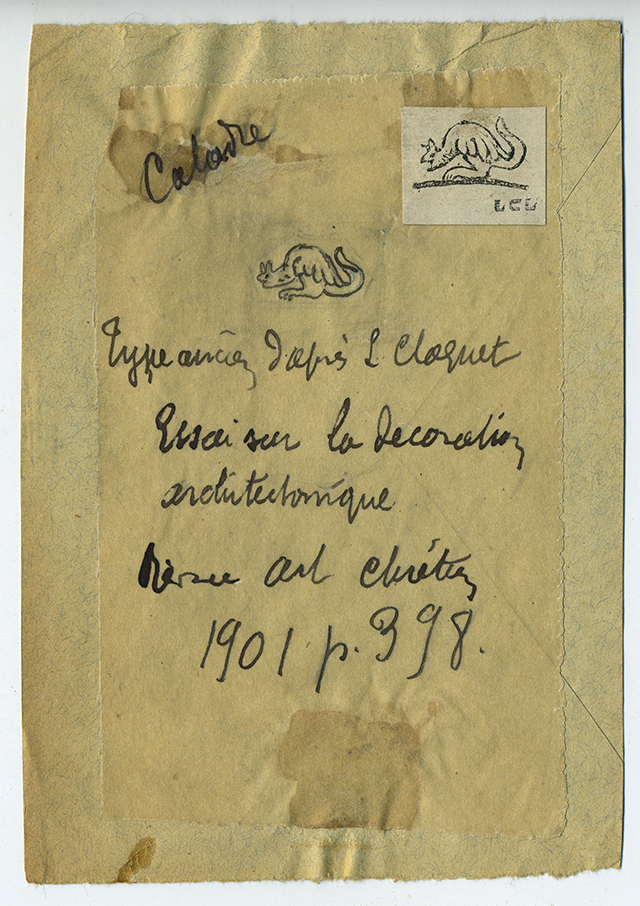 Caladre
LCL
Type ancien d'après L Cloquet
Essai sur la decoration
architectonique
Revue art chrétien
1901 p. 398.